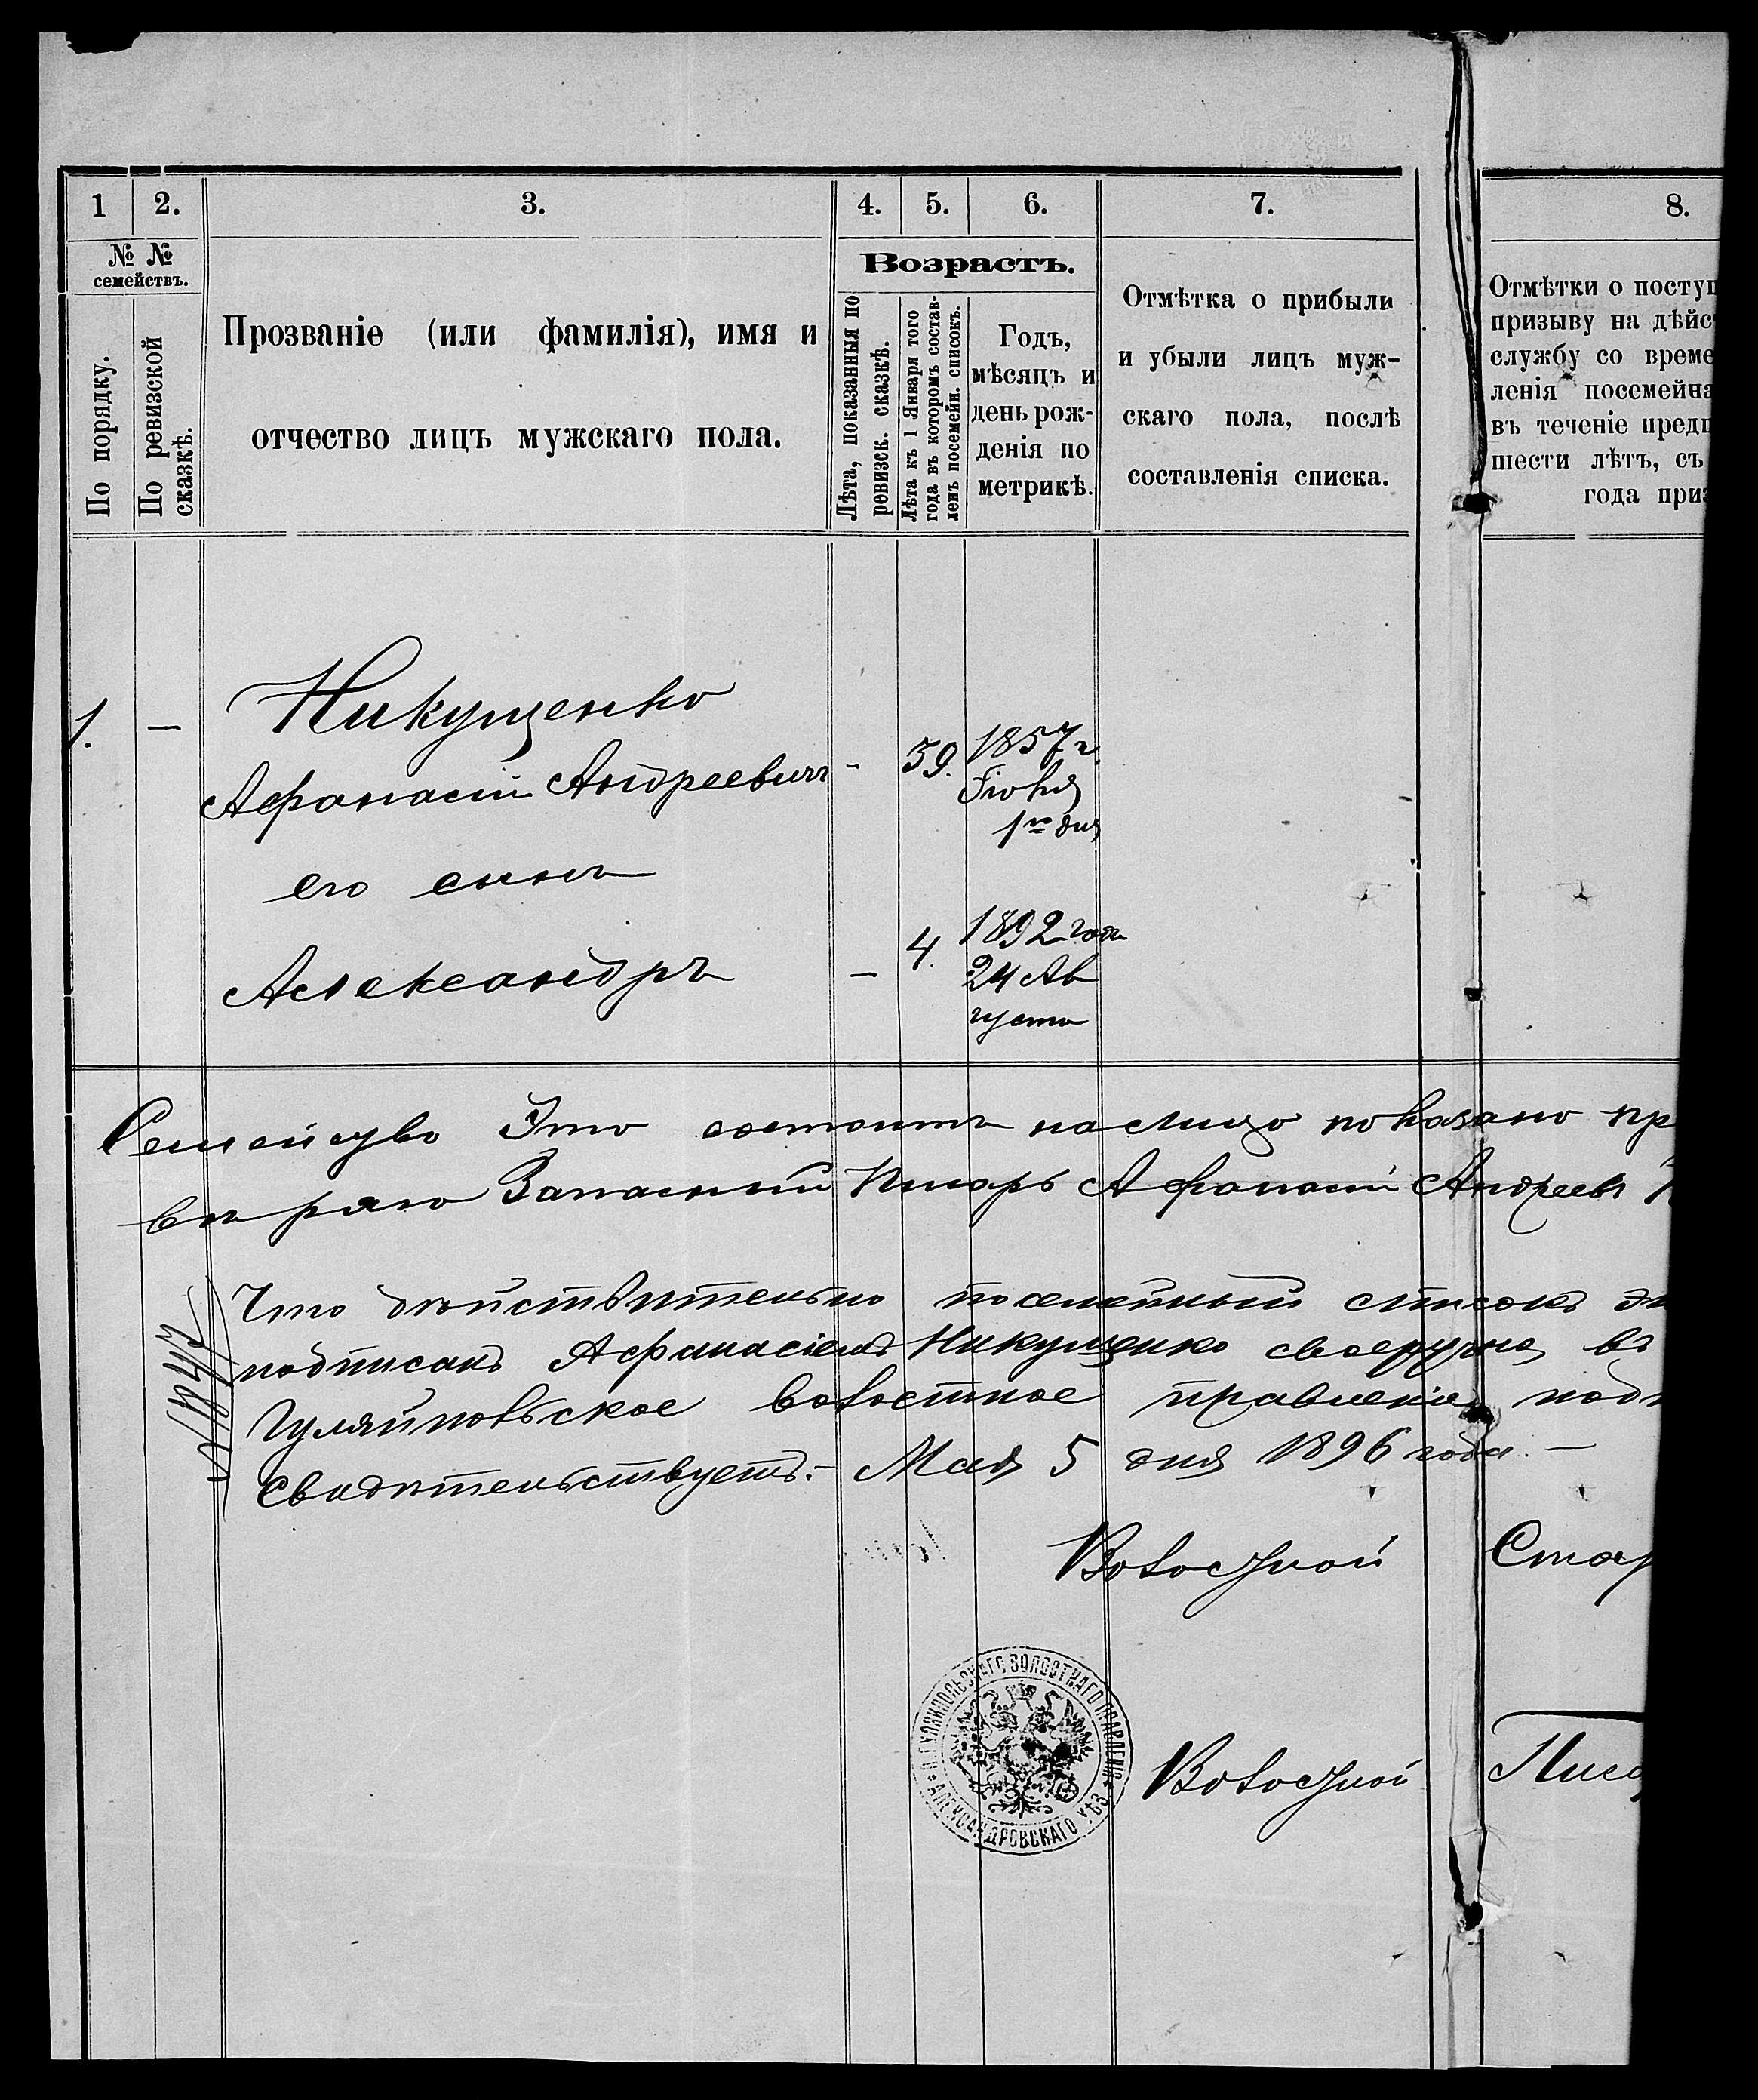 1 2. 3. 4. 5. 6. 7. 8.
№ № семействъ.
По порядку.
По ревизской сказкѣ.
Прозваніе (или фамилія), имя и
отчество лицъ мужскаго пола.
Возрастъ.
Лѣта, показанныя по
ревизск. сказкѣ.
Лѣта къ 1 Января того
года въ которомъ состав-
ленъ посемейн. списокъ.
Годъ,
мѣсяцъ и
день рож-
денія по
метрикѣ.
Отмѣтка о прибыли
и убыли лицъ муж-
скаго пола, послѣ
составленія списка.
Отмѣтки о поступ
призыву на дѣйс
службу со време
ленія посемейна
въ теченіе предш
шести лѣтъ, съ
года приз
1. —
Никущенко
Афанасій Андреевичъ - 39. 1857 г.
Іюня
1го дня
его сынъ
Александръ — 4. 1892 года
24 Ав
густа
Семейство Это состоитъ на лицо показано пр
Запасный Писарь Афанасій Андреевъ
Что дѣйствительно посемейный списокъ
подписанъ Афанасіемъ Никущенко своеручно, въ
Гуляйпольское волостное правленіе
свидѣтельствуетъ.- Мая 5 дня 1896 года. —
Волостной Стар
ГУЛЯЙПОЛЬСКАГО ВОЛОСТНАГО ПРАВЛЕНІЯ
АЛЕКСАНДРОВСКАГО УѢЗ.
Волостной Писа